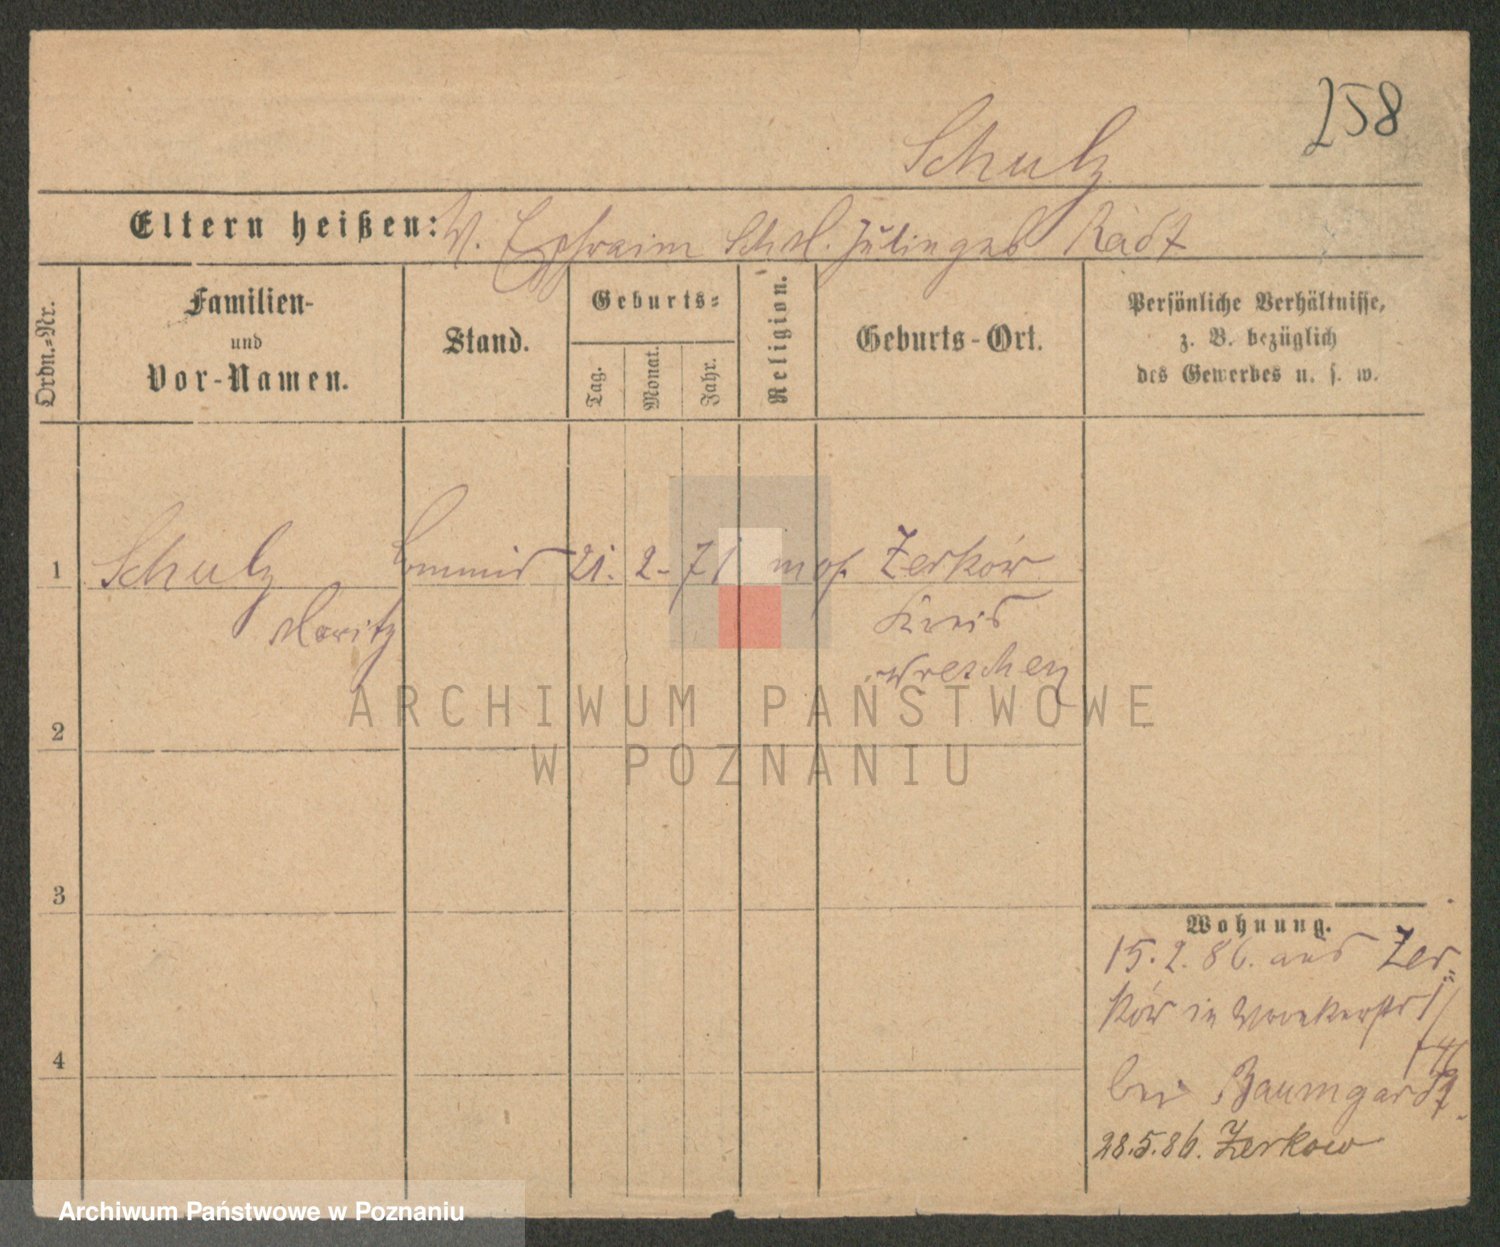 258
Schulz
Eltern heißen: V. Ephraim Sch. Julie geb Radt
Ordn.=Nr.
Familien-
und
Vor-Namen.
Stand.
Geburts=
Tag.
Monat.
Jahr.
Religion.
Geburts-Ort.
Persönliche Verhältnisse,
z. B. bezüglich
des Gewerbes u. s. w.
1
Schulz Commis 21. 2. 71 mos. Zerków
Moritz
Kreis
Wreschen
ARCHIWUM PAŃSTWOWE
W POZNANIU
2
3
4
Wohnung.
15.2.86. aus Zer=
ków in Wronkerstr
bei Baumgardt
28.5.86. Zerkow
Archiwum Państwowe w Poznaniu